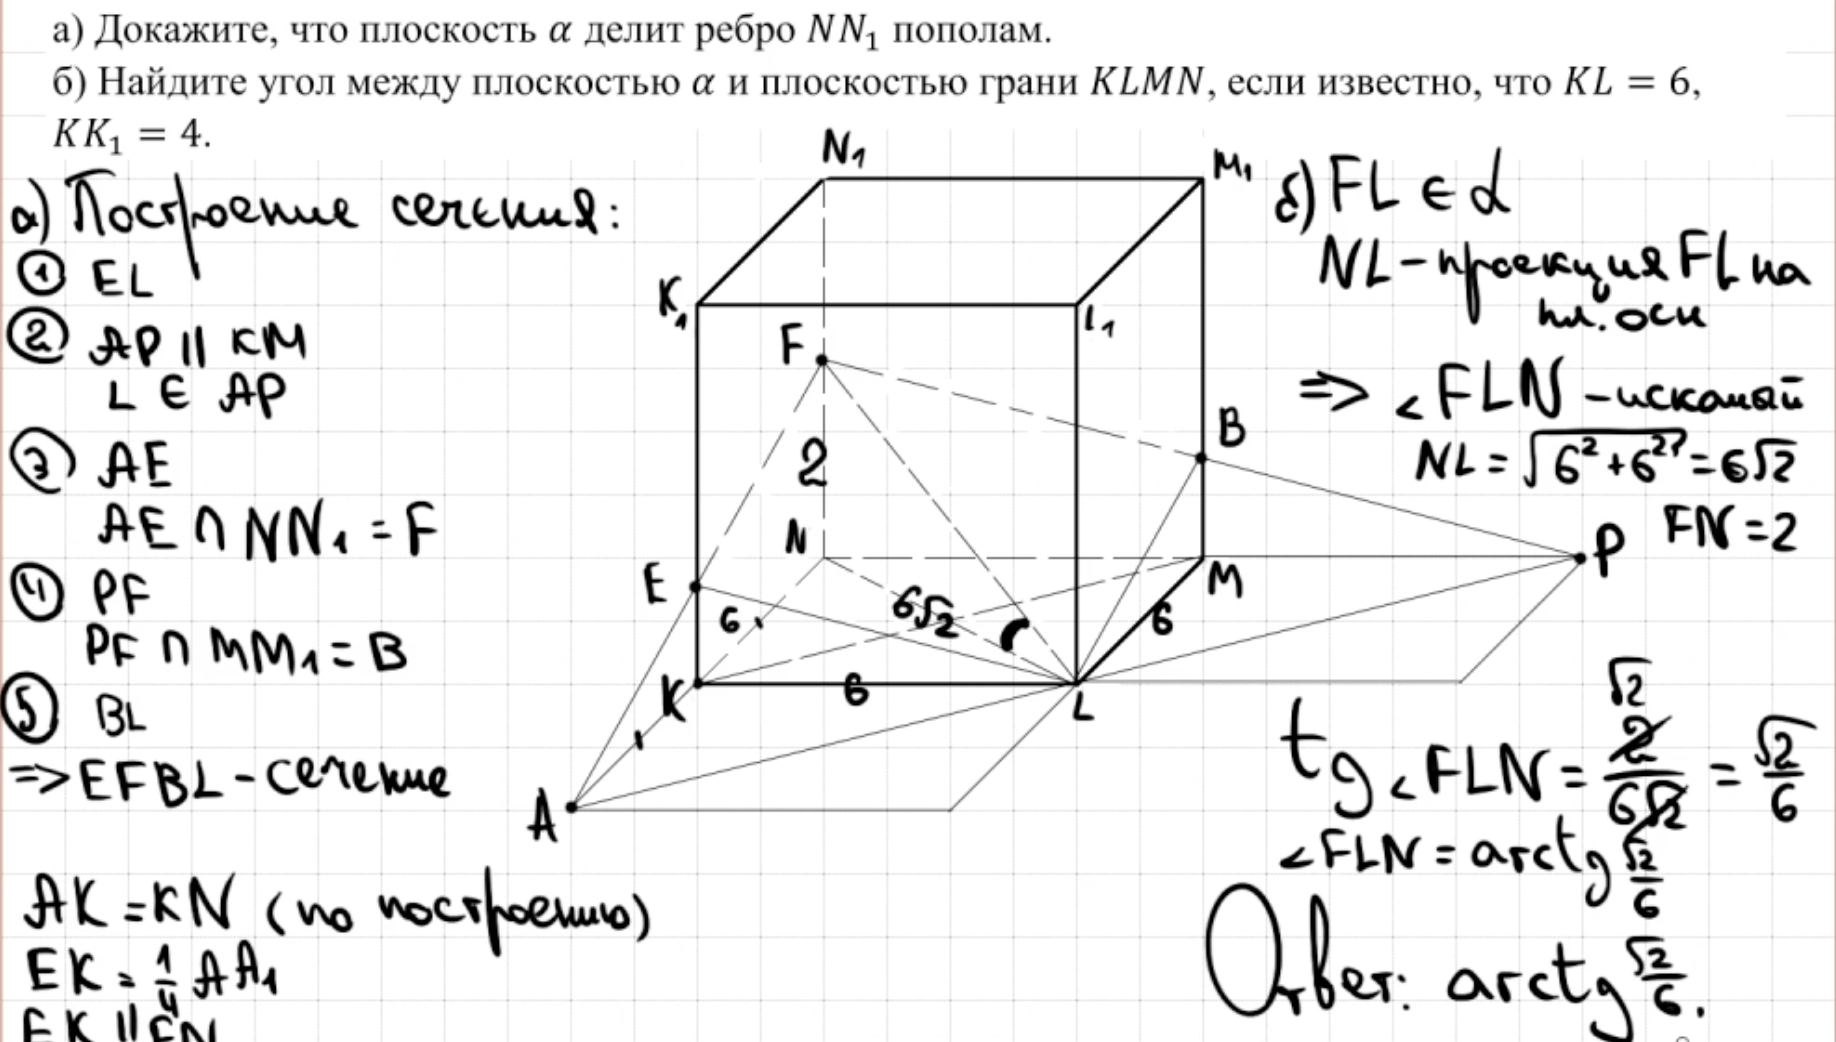 а) Докажите, что плоскость α делит ребро NN₁ пополам.
б) Найдите угол между плоскостью α и плоскостью грани KLMN, если известно, что KL = 6,
KK₁ = 4.
а) Построение сечения:
① EL
② AP || KM
L ∈ AP
③ AE
AE ∩ NN₁ = F
④ PF
PF ∩ MM₁ = B
⑤ BL
=> EFBL - сечение
AK = KN (по построению)
EK = 1/4 AA₁
EK || FN
N₁
M₁
K₁
L₁
F
B
2
N
P
E
M
6
6√2
6
K
6
L
A
б) FL ∈ α
NL - проекция FL на
пл. осн
=> ∠FLN - искомый
NL = √(6² + 6²) = 6√2
FN = 2
√2
tg ∠FLN = 2/(6√2) = √2/6
∠FLN = arctg √2/6
Ответ: arctg √2/6.